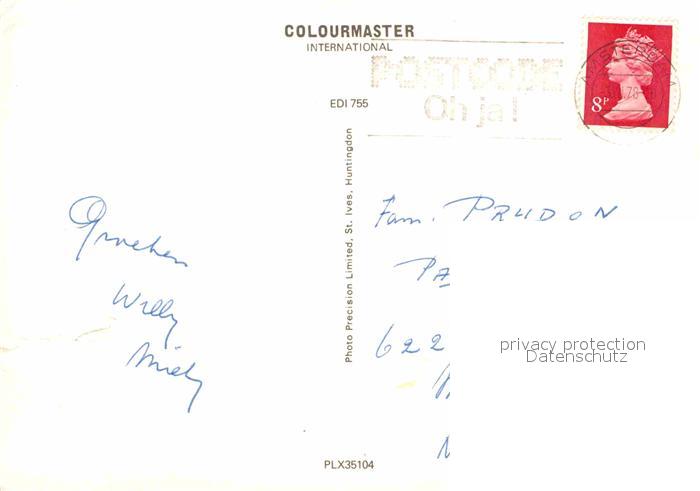 COLOURMASTER
INTERNATIONAL
POSTCODE
Oh ja!
8P
AMSTERDAM
78
EDI 755
Photo Precision Limited, St. Ives, Huntingdon
Groeten
Willy
Miely
Fam. PRUDON
PA
622
privacy protection
Datenschutz
PLX35104